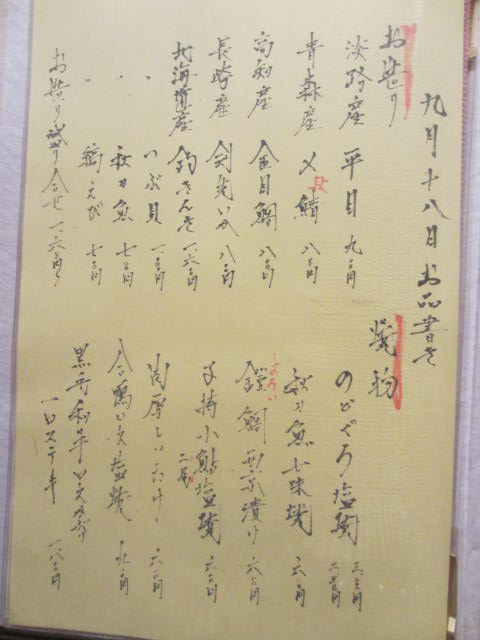 九月十八日 お品書き
お造り
淡路産 平目 九〇〇円
青森産 〆鯖 八〇〇円
高知産 金目鯛 八〇〇円
長崎産 剣先いか 八〇〇円
北海道産 釣きんき 一、六〇〇円
〃 つぶ貝
〃 秋刀魚 七〇〇円
縞えび 七〇〇円
お造り盛り合せ 一、六〇〇円
焼物
のどぐろ塩焼
秋刀魚七味焼 六〇〇円
よろい
鎧鯛西京漬け 六〇〇円
子持小鮎塩焼 二尾 六〇〇円
肉厚しいたけ 六〇〇円
合鴨ロース塩焼 九〇〇円
黒毛和牛
一口ステーキ 一、八〇〇円